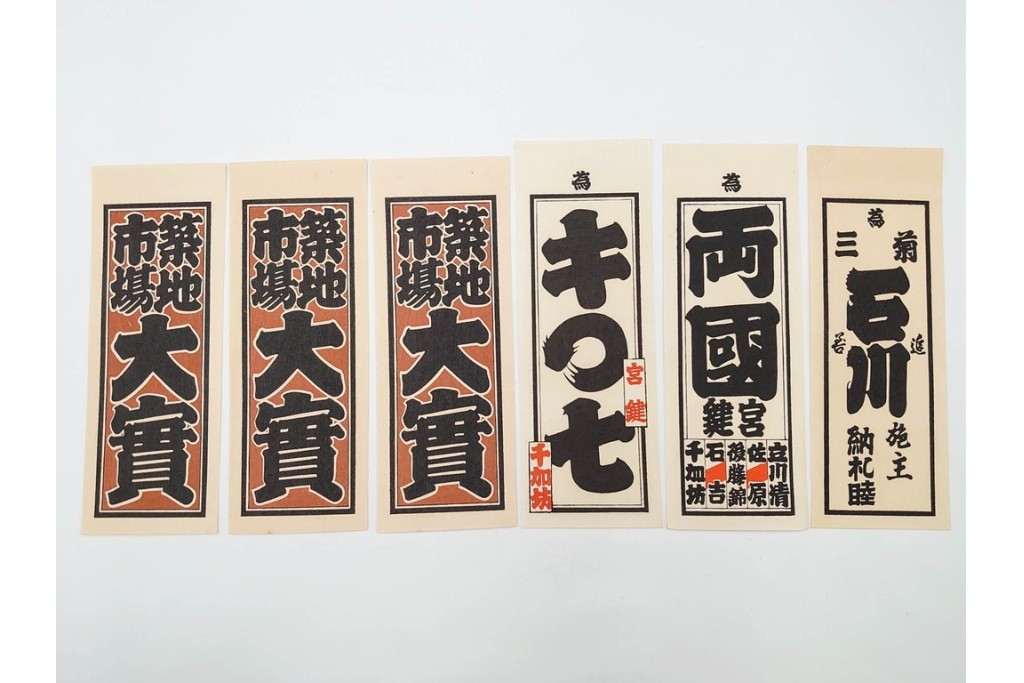 築地
市場
大實
築地
市場
大實
築地
市場
大實
為
キ〇七
宮鍵
千加坊
為
両國
宮鍵
立川清
佐原
後藤錦
石吉
千加坊
為
菊三
石川
追善
施主
納札睦